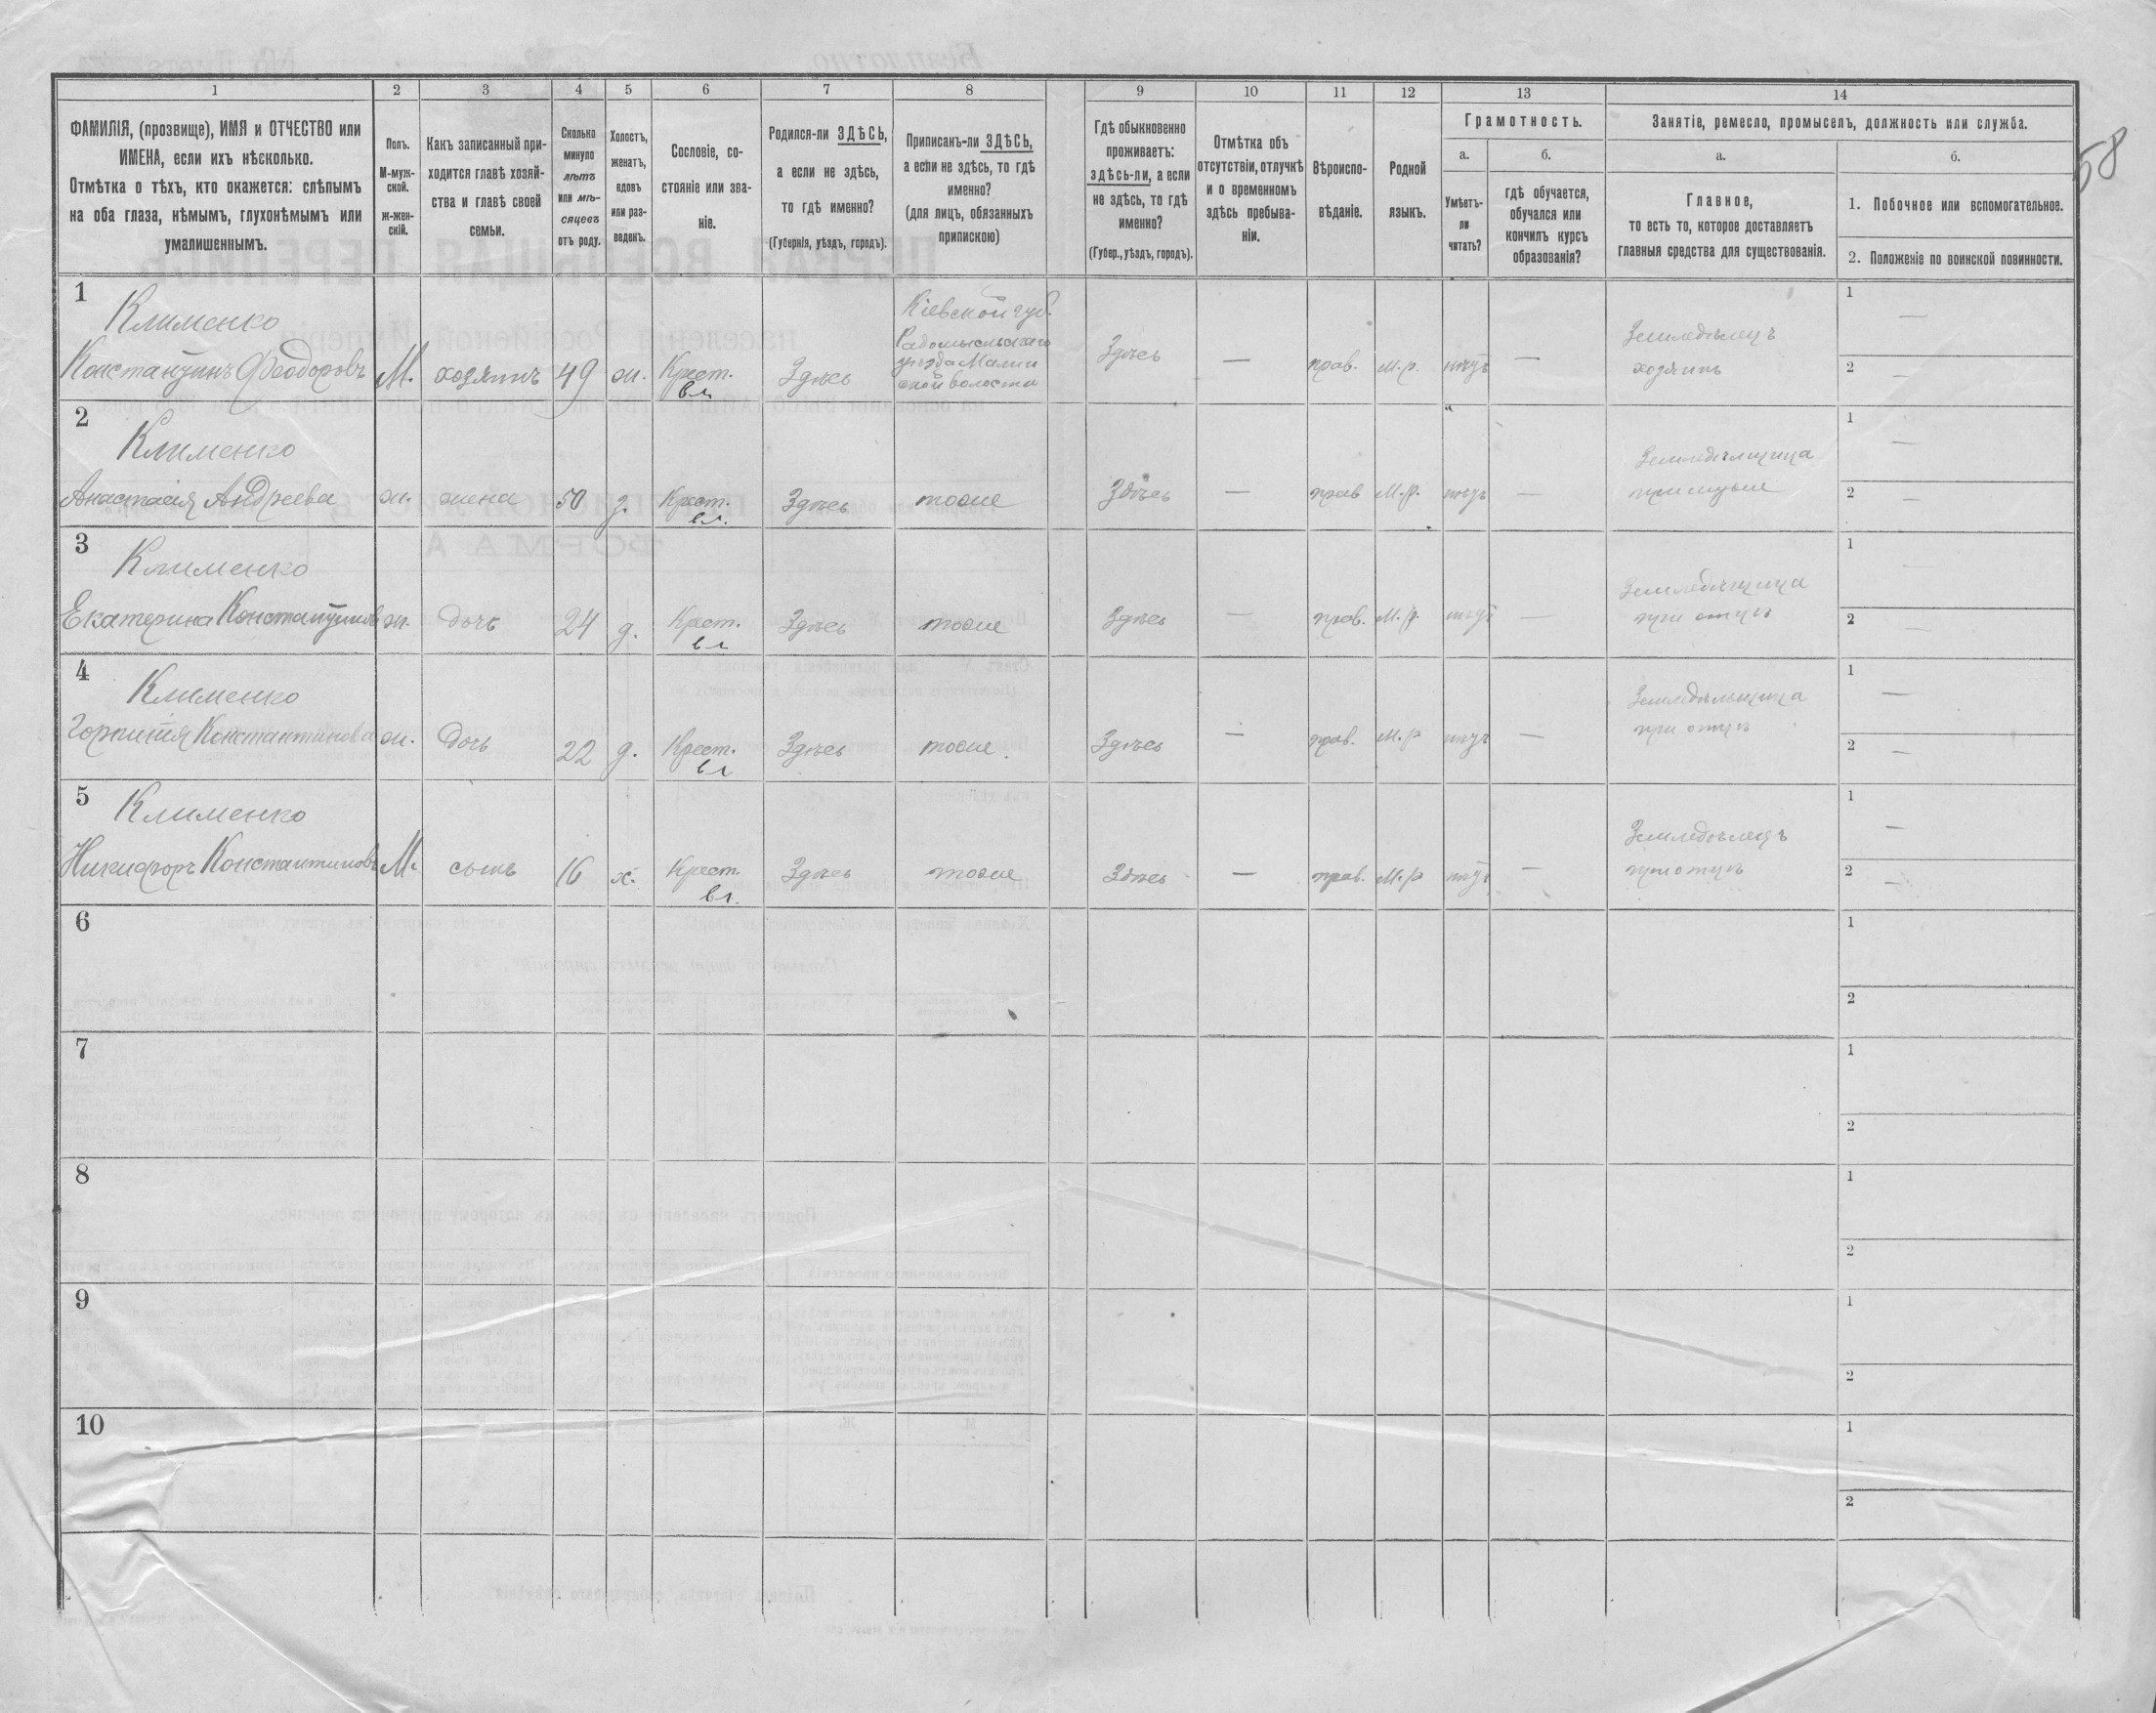 58
1 2 3 4 5 6 7 8 9 10 11 12 13 14
ФАМИЛІЯ, (прозвище), ИМЯ и ОТЧЕСТВО или
ИМЕНА, если ихъ нѣсколько.
Отмѣтка о тѣхъ, кто окажется: слѣпымъ
на оба глаза, нѣмымъ, глухонѣмымъ или
умалишеннымъ.
Полъ.
М-муж-
ской.
ж-жен-
скій.
Какъ записанный при-
ходится главѣ хозяй-
ства и главѣ своей
семьи.
Сколько
минуло
лѣтъ
или мѣ-
сяцевъ
отъ роду.
Холостъ,
женатъ,
вдовъ
или раз-
веденъ.
Сословіе, со-
стояніе или зва-
ніе.
Родился-ли ЗДѢСЬ,
а если не здѣсь,
то гдѣ именно?
(Губернія, уѣздъ, городъ).
Приписанъ-ли ЗДѢСЬ,
а если не здѣсь, то гдѣ
именно?
(для лицъ, обязанныхъ
припискою)
Гдѣ обыкновенно
проживаетъ:
здѣсь-ли, а если
не здѣсь, то гдѣ
именно?
(Губер., уѣздъ, городъ).
Отмѣтка объ
отсутствіи, отлучкѣ
и о временномъ
здѣсь пребыва-
ніи.
Вѣроиспо-
вѣданіе.
Родной
языкъ.
Грамотность.
а.
Умѣетъ-
ли
читать?
б.
гдѣ обучается,
обучался или
кончилъ курсъ
образованія?
Занятіе, ремесло, промыселъ, должность или служба.
а.
Главное,
то есть то, которое доставляетъ
главныя средства для существованія.
б.
1. Побочное или вспомогательное.
2. Положеніе по воинской повинности.
1
Клименко
Константинъ Феодоровъ М. хозяинъ 49 ж. Крест. вл. Здѣсь
Кіевской губ.
Радомысльскаго
уѣзда Малин
ской волости
Здѣсь — прав. м.р. —
Земледѣлецъ
хозяинъ
1 —
2 —
2
Клименко
Анастасія Андреева ж. жена 50 з. Крест. вл. Здѣсь тоже Здѣсь — прав М.р. —
Земледѣлица
при мужѣ
1 —
2 —
3
Клименко
Екатерина Константинов ж. дочь 24 д. Крест. вл Здѣсь тоже Здѣсь — прав. М.р. —
Земледѣлица
при отцѣ
1 —
2 —
4
Клименко
Константинова ж. дочь 22 д. Крест. вл Здѣсь тоже Здѣсь — прав. м.р —
Земледѣльщица
при отцѣ
1 —
2 —
5
Клименко
Никифоръ Константиновъ М. сынъ 16 х. Крест. вл. Здѣсь тоже Здѣсь — прав. М.р —
Земледѣлецъ
при отцѣ
1 —
2 —
6
1
2
7
1
2
8
1
2
9
1
2
10
1
2